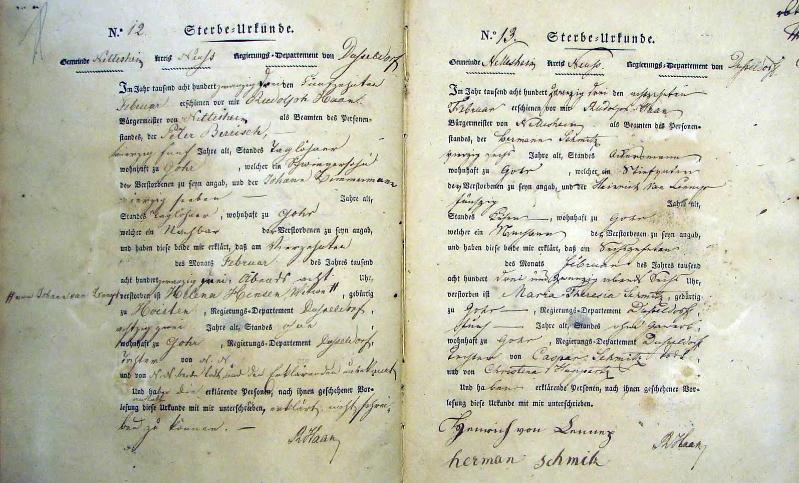 N.° 12. Sterbe-Urkunde.
Gemeinde Nettesheim Kreis Neuss Regierungs-Departement von Dusseldorf
Im Jahr tausend acht hundert zwanzig den fünfzehnten
Februar erschienen vor mir Rudolph Haan
Bürgermeister von Nettesheim als Beamten des Personen-
standes, der Peter
vierzig fünf Jahre alt, Standes Taglöhner
wohnhaft zu Gohr, welcher ein Schwiegersohn
des Verstorbenen zu seyn angab, und der Johann Zimmermann
vierzig sieben — Jahre alt,
Standes Taglöhner, wohnhaft zu Gohr
welcher ein Nachbar des Verstorbenen zu seyn angab,
und haben diese beide mir erklärt, daß am vierzehnten
des Monats Februar des Jahres tausend
acht hundert zwanzig drei Abends acht Uhr,
verstorben ist Helena Hensen Wittwe, gebürtig
zu Hoisten, Regierungs-Departement Dusseldorf,
achtzig zwei Jahre alt, Standes ohne
wohnhaft zu Gohr, Regierungs-Departement Dusseldorf,
Tochter von N. N.
und von N. N. beide todt und den unbekannt
Und haben die erklärende Personen, nach ihnen geschehener Vor-
lesung diese Urkunde mit mir unterschrieben, erklärt nicht schrei-
ben zu können. —
R Haan
N.° 13. Sterbe-Urkunde.
Gemeinde Nettesheim Kreis Neuss. Regierungs-Departement von Dusseldorf
Im Jahr tausend acht hundert zwanzig drei den achtzehnten
Februar erschienen vor mir Rudolph Haan
Bürgermeister von Nettesheim als Beamten des Personen-
standes, der Hermann Schmitz
vierzig sechs Jahre alt, Standes Ackersmann
wohnhaft zu Gohr, welcher ein
des Verstorbenen zu seyn angab, und der Heinrich von Lennep
fünfzig Jahre alt,
Standes —, wohnhaft zu Gohr
welcher ein des Verstorbenen zu seyn angab,
und haben diese beide mir erklärt, daß am sechszehnten
des Monats Februar des Jahres tausend
acht hundert drei und zwanzig abends sechs Uhr,
verstorben ist Maria Theresia Schmitz, gebürtig
zu Gohr —, Regierungs-Departement Dusseldorf
— Jahre alt, Standes ohne Gewerb,
wohnhaft zu Gohr, Regierungs-Departement Dusseldorf
Tochter von Caspar Schmitz
und von Christina
Und haben erklärende Personen, nach ihnen geschehener Vor-
lesung diese Urkunde mit mir unterschrieben.
Henrich von Lennep
R Haan
herman schmitz